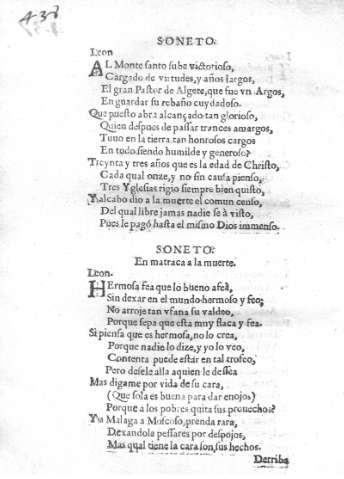 438
SONETO.
Leon
AL Monte santo sube victorioso,
Cargado de virtudes, y años largos,
El gran Pastor de Algete, que fue vn Argos,
En guardar su rebaño cuydadoso.
Que puesto abra alcançado tan glorioso,
Quien despues de passar trances amargos,
Tuuo en la tierra tan honrosos cargos
En todo siendo humilde y generoso?
Treynta y tres años que es la edad de Christo,
Cada qual onze, y no sin causa pienso,
Tres Yglesias rigio siempre bien quisto,
Y al cabo dio a la muerte el comun censo,
Del qual libre jamas nadie se à visto,
Pues le pagó hasta el mismo Dios immenso.
SONETO.
En matraca a la muerte.
Leon.
HErmosa fea que lo bueno afea,
Sin dexar en el mundo hermoso y feo;
No arroje tan vfana su valdeo,
Porque sepa que esta muy flaca y fea.
Si piensa que es hermosa, no lo crea,
Porque nadie lo dize, y yo lo veo,
Contenta puede estár en tal trofeo,
Pero desele alla a quien le dessea
Mas digame por vida de su cara,
(Que sola es buena para dar enojos)
Porque a los pobres quita sus prouechos?
Y si a Malaga a Moscoso, prenda rara,
Dexandole pessares por despojos,
Mas qual tiene la cara son, sus hechos.
Derriba